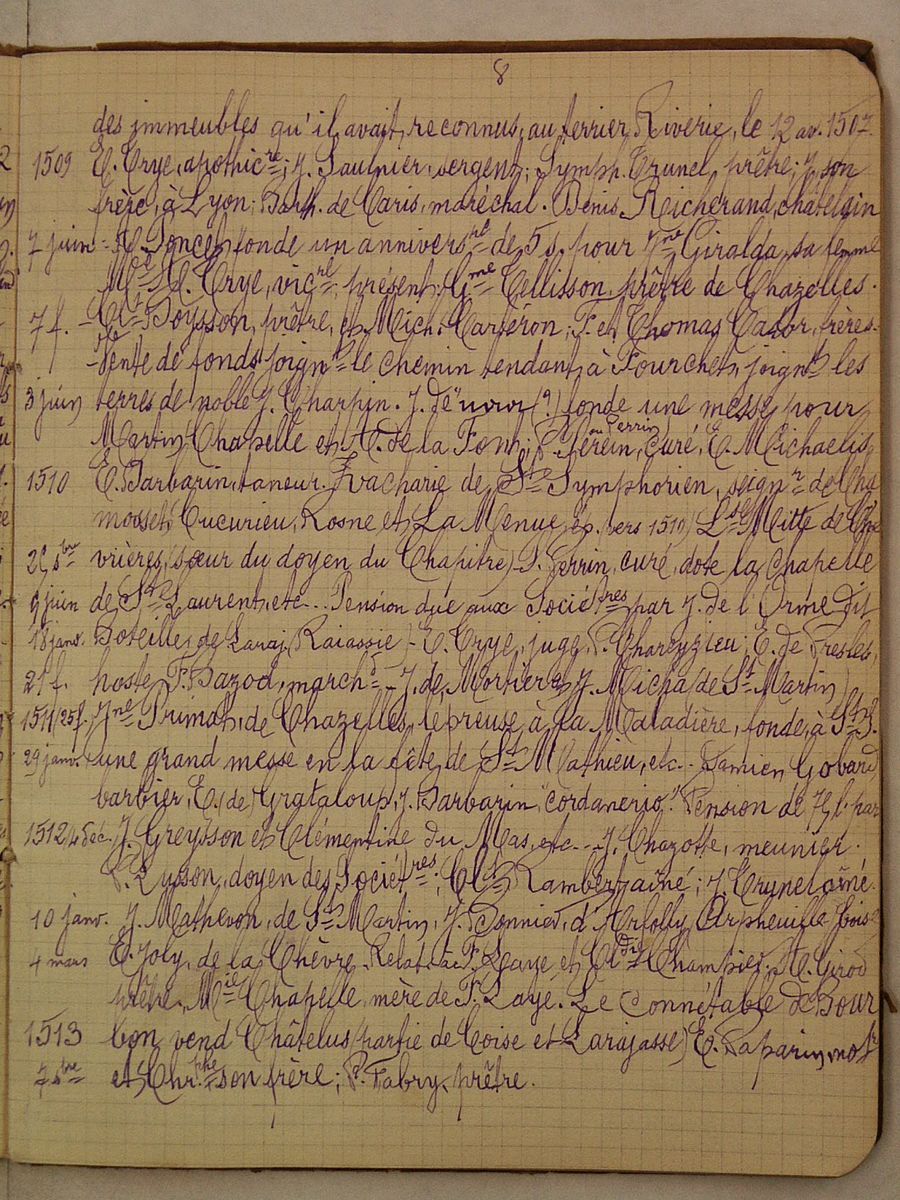 8
des immeubles qu'il avait reconnus au terrier Riverie, le 12 av. 1507.
1509 E. Crye, apothicre; J. Saulnier, sergent; Symph. Crunel, prêtre; J. son
frère, à Lyon; Barth. de Caris, maréchal. Denis Richerand, châtelain
7 juin - Poncet fonde un anniversre de 5 s. pour Jne Giralda, sa femme
Crye, vicre, présent; Gme Cellisson, prêtre de Chazelles.
7 f. - Boysson, prêtre, et Mich. Carteron; F. et Thomas Cador, frères.
Vente de fonds joignt le chemin tendant à Fourchet, joignt les
3 juin terres de noble J. Charpin. J. de (?) fonde une messe pour
Martin Chapelle et A. de la Font; P. Perein, ou Perrin, curé, E. Michaelis,
1510 E. Barbarin, taneur. Zacharie de St Symphorien, seignr de Cha
mousset, Cucurieu, Rosne et La Menue, ép. vers 1510, Lse Mitte de Che
vrières, (sœur du doyen du Chapitre) - P. Perrin, curé, dote la Chapelle
9 juin de St Laurent, etc... Pension due aux Sociétres par J. de l'Orme dit
18 janv. Boteille, de Laraj, - E. Crye, juge, P. Chareyzieu; E. de Presles,
21 f. hoste, F. Bazod, marchd - J. de Mortier et J. Micha (de St Martin)
1511/25 f. Jne Primat, de Chazelles, lépreuse à la Maladière, fonde, à St S.
29 janv. une grand messe en la fête de St Mathieu, etc... Damien Gobard
barbier, E. (de) Grataloup, J. Barbarin "cordanerio". Pension de par
1512/4 déc. J. Greysson et Clémentine du Mas, etc... - J. Chazotte, meunier.
P. Lysson, doyen des Sociétres; Clt Rambert aîné; J. Crunel aîné.
10 janv. J. Mathevon, de St Martin; J. Bonnier, d'
4 mars E. Joly, de la Chèvre. Relat. à F. Laye et Cl. Champier. A. Girod
prêtre. Mie Chapelle, mère de F. Laye. Le Connétable de Bour
1513 bon vend Châtelus (partie de Coise et Larajasse) E. Paparin, notr
7 bre et Chr.phe son frère; P. Fabry, prêtre.